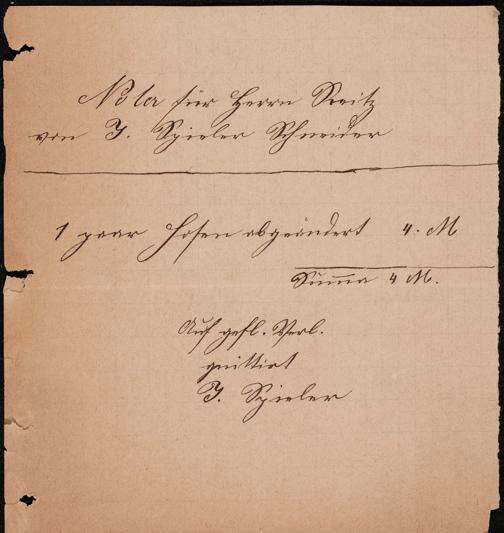 Nota für Herrn Seitz
von J. Spieler Schneider
1 paar Hosen abgeändert 4. M
Summa 4 M.
Auf gefl. Verl.
quittirt
J. Spieler